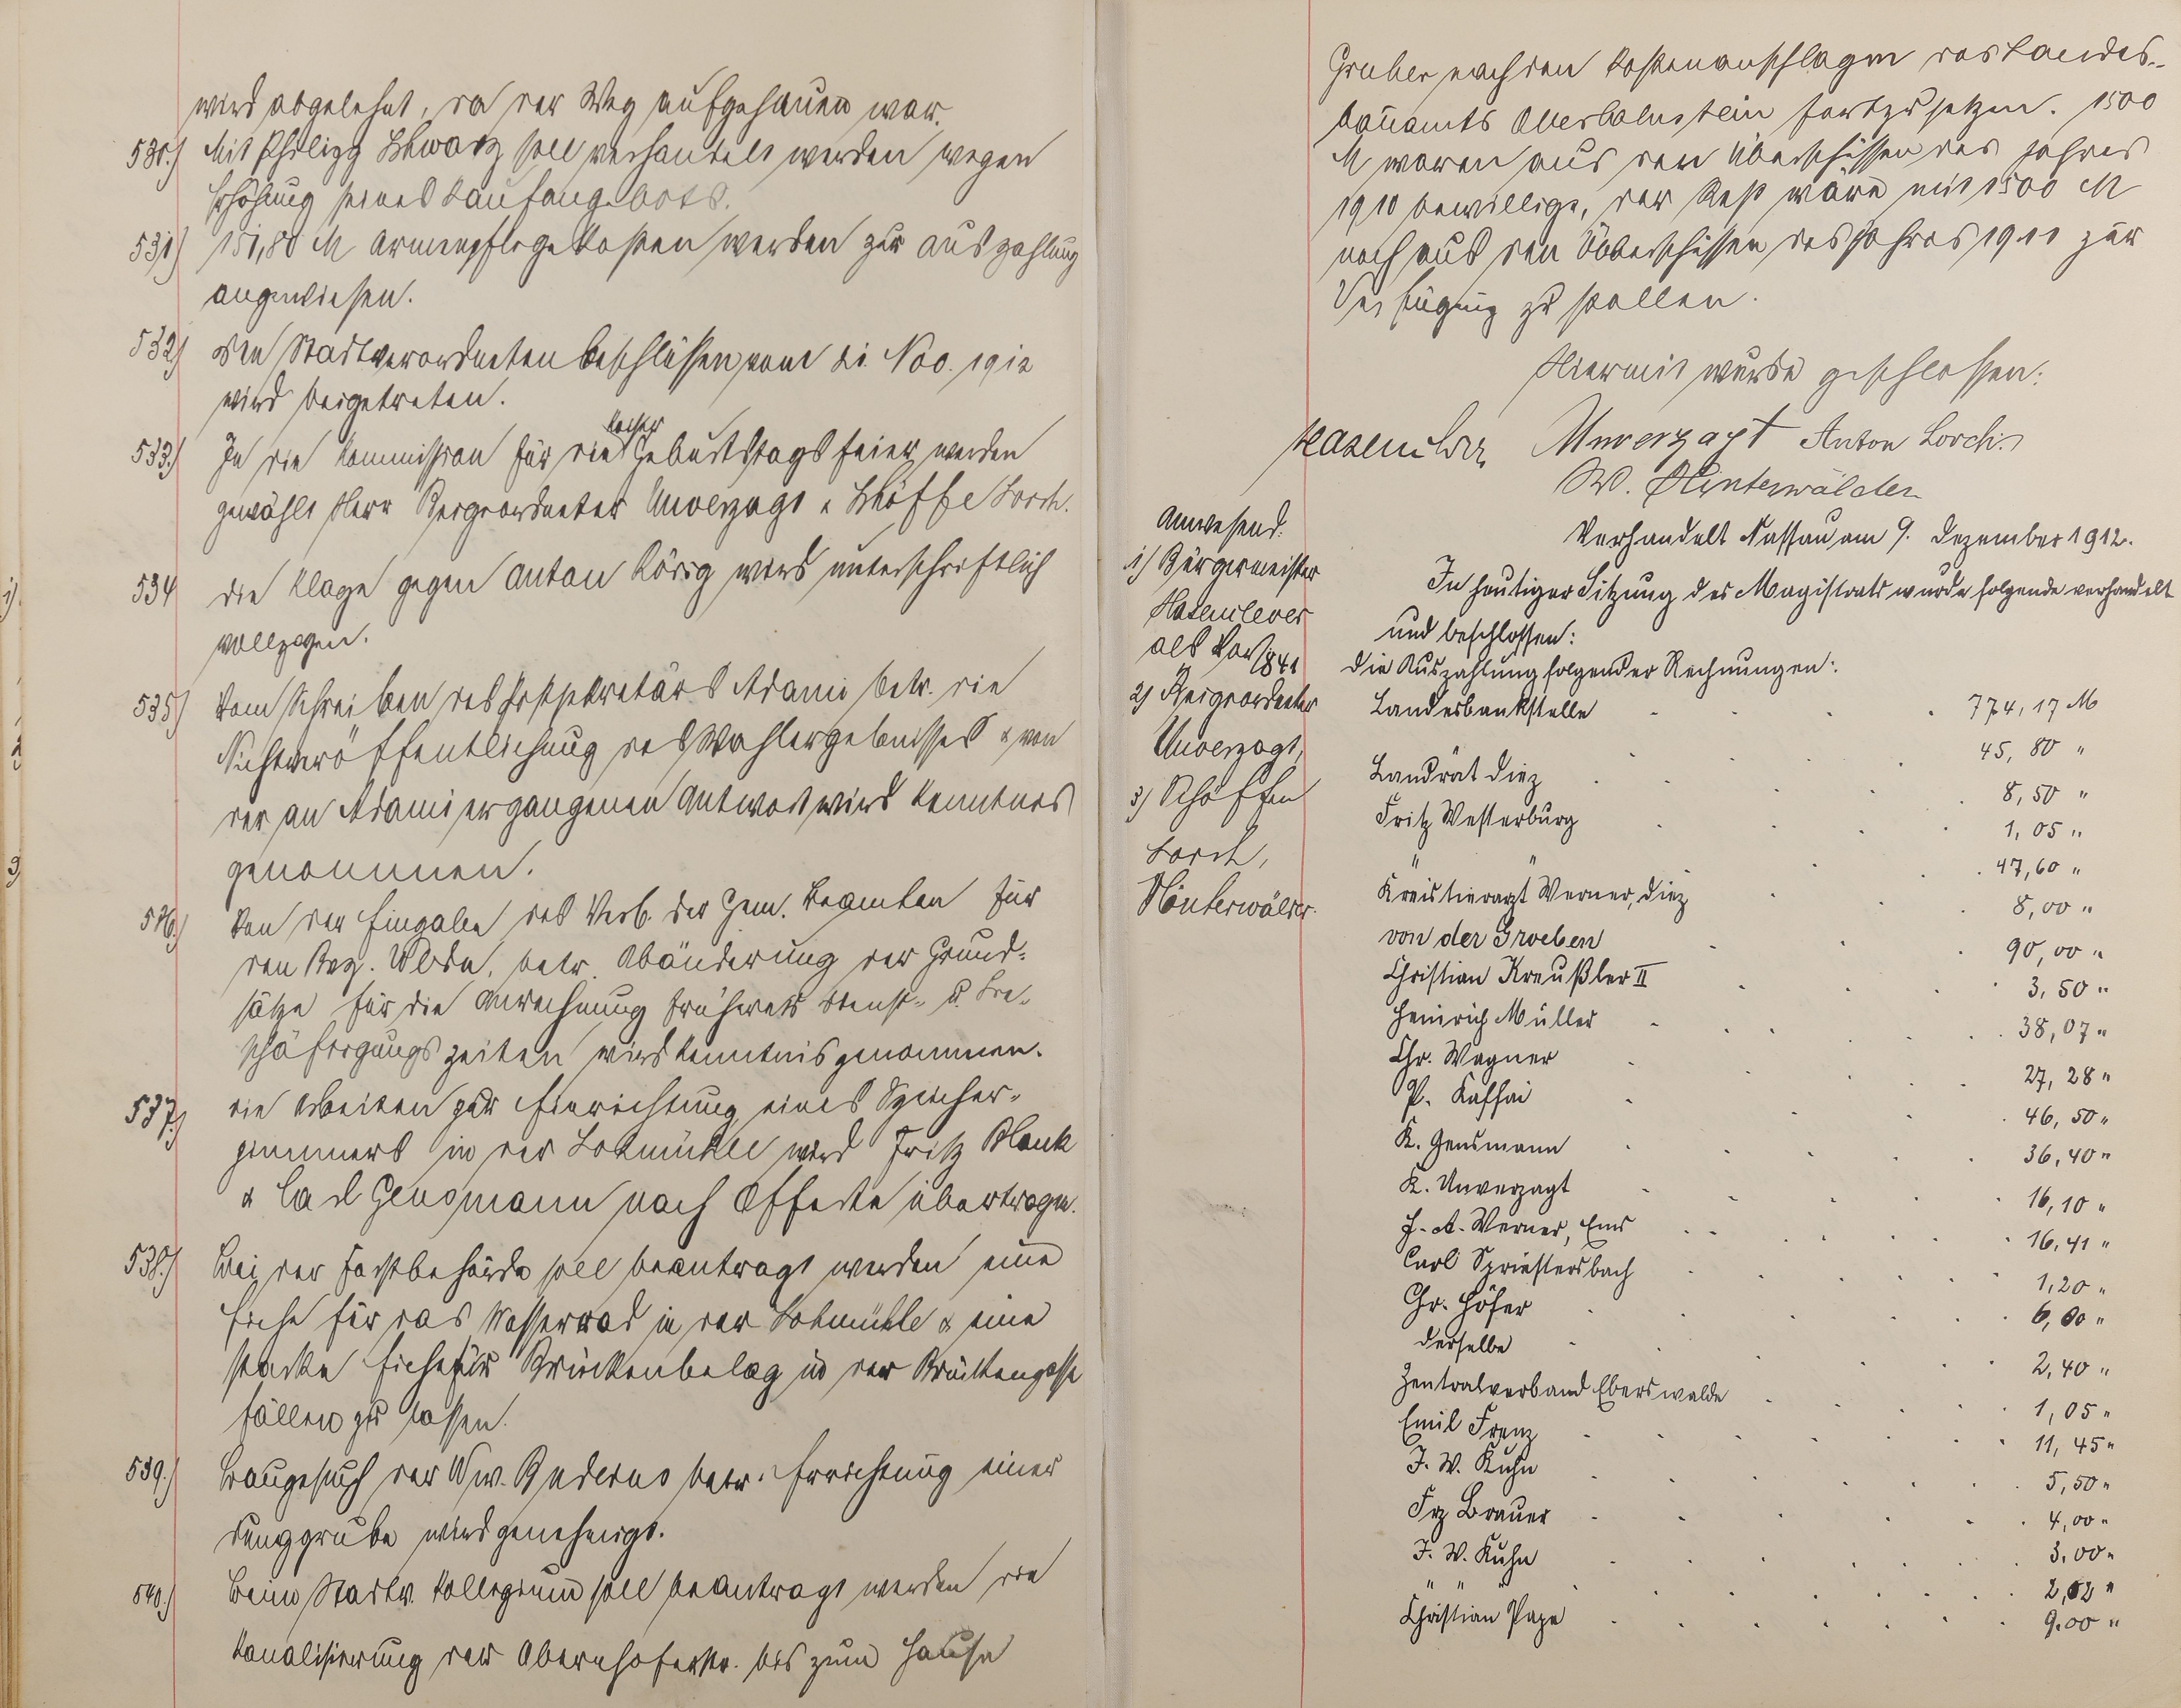 wird abgelehnt, da der Weg aufgehauen war.
530.) Mit Philipp Schwarz soll verhandelt werden wegen
Erhöhung seines Kaufangebots.
531) 151,80 M Armenpflegekosten werden zur Auszahlung
angewiesen.
532) Den Stadtverordneten beschlüssen vom 21. Nov. 1912
wird beigetreten.
533.) In die Kommission für die Kaiser Geburtstagsfeier werden
gewählt Herr Beigeordneter Unverzagt & Schöffe Lorch.
534 Die Klage gegen Anton Körig wird unterschriftlich
vollzogen.
535) Vom Schreiben des Postsekretärs Adami betr. die
Nichtveröffentlichung des Wahlergebnisses & von
der an Adami ergangenen Antwort wird Kenntnis
genommen.
536.) Von der Eingabe des Verb. der Gem. Beamten für
den Bez. Wbdn. betr. Abänderung der Grund-
sätze für die Anrechnung früherer Dienst- u. Be-
schäftigungszeiten wird Kenntnis genommen.
537.) Die Arbeiten zur Einrichtung eines Speicher-
zimmers in der Lohmühle wird Fritz Blank
& Carl Gensmann nach Offerte übertragen.
538.) Bei der Forstbehörde soll beantragt werden eine
Eiche für das Wasserrad in der Lohmühle & eine
starke Eiche für Brückenbelag in der Brückengasse
fällen zu lassen.
539.) Baugesuch der Ww. Buderus betr. Errichtung einer
Dunggrube wird genehmigt.
540.) Beim Stadtv. Kollegium soll beantragt werden die
Kanalisierung der Obernhoferstr. bis zum Hause
Gruber nach den Kostenanschlagen des Landes-
bauamts Oberlahnstein fortzusetzen. 1500
M waren aus den Überschüssen des Jahres
1910 bewilligt, der Rest wäre mit 1500 M
noch aus den Überschüssen des Jahres 1911 zur
Verfügung zu stellen.
Hiermit wurde geschlossen:
Hasenclever Unverzagt Anton Lorch.
W. Hinterwälder
Anwesend:
1) Bürgermeister
Hasenclever
als Vors.
2) Beigeordneter
Unverzagt,
3) Schöffen
Lorch,
Hinterwälder.
Verhandelt Nassau am 9. Dezember 1912.
In heutiger Sitzung des Magistrats wurde folgende verhandelt
und beschlossen:
841 Die Auszahlung folgender Rechnungen:
Landesbankstelle 774,17 M
Landrat Diez 45,80 "
Fritz Westerburg 8,50 "
" " 1,05 "
Kreistierarzt Werner, Diez 47,60 "
von der Groeben 8,00 "
Christian Kreußler II 90,00 "
Heinrich Müller 3,50 "
Chr. Wagner 38,07 "
P. Kaffai 27,28 "
K. Gensmann 46,50 "
K. Unverzagt 36,40 "
H. A. Werner, Ems 16,10 "
Carl Spriestersbach 16,41 "
Chr. Höfer 1,20 "
derselbe 6,00 "
Zentralverband Eberswalde 2,40 "
Emil Frenz 1,05 "
J. W. Kuhn 11,45 "
Frz Brauer 5,50 "
J. W. Kuhn 4,00 "
" " " 3,00 "
Christian Pape 2,52 "
9,00 "